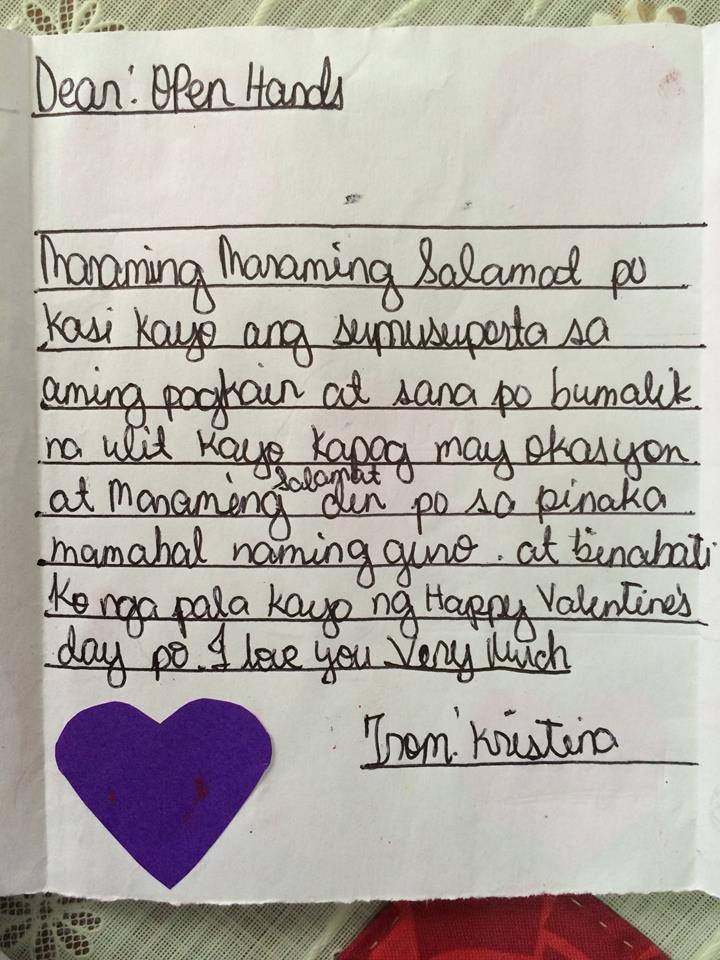 Dear: Open Hands
Maraming Maraming Salamad po
kasi kayo ang sumusuporta sa
aming pagkain at sana po bumalik
na ulit kayo kapag may okasyon
at Maraming salamat din po sa pinaka
mamahal naming guro. at binabati
Ko nga pala kayo ng Happy Valentine's
day po. I love you Very Much
From: Kristina